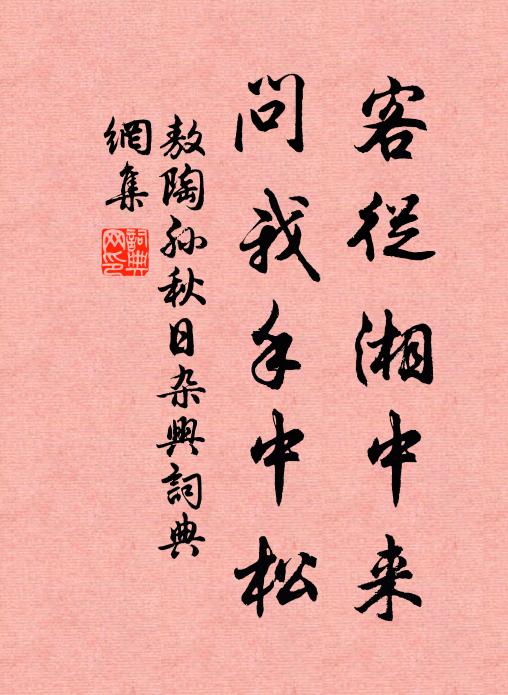 客從湘中来
問我手中松
敖陶孫秋日杂興詞典
網集
詞典網印